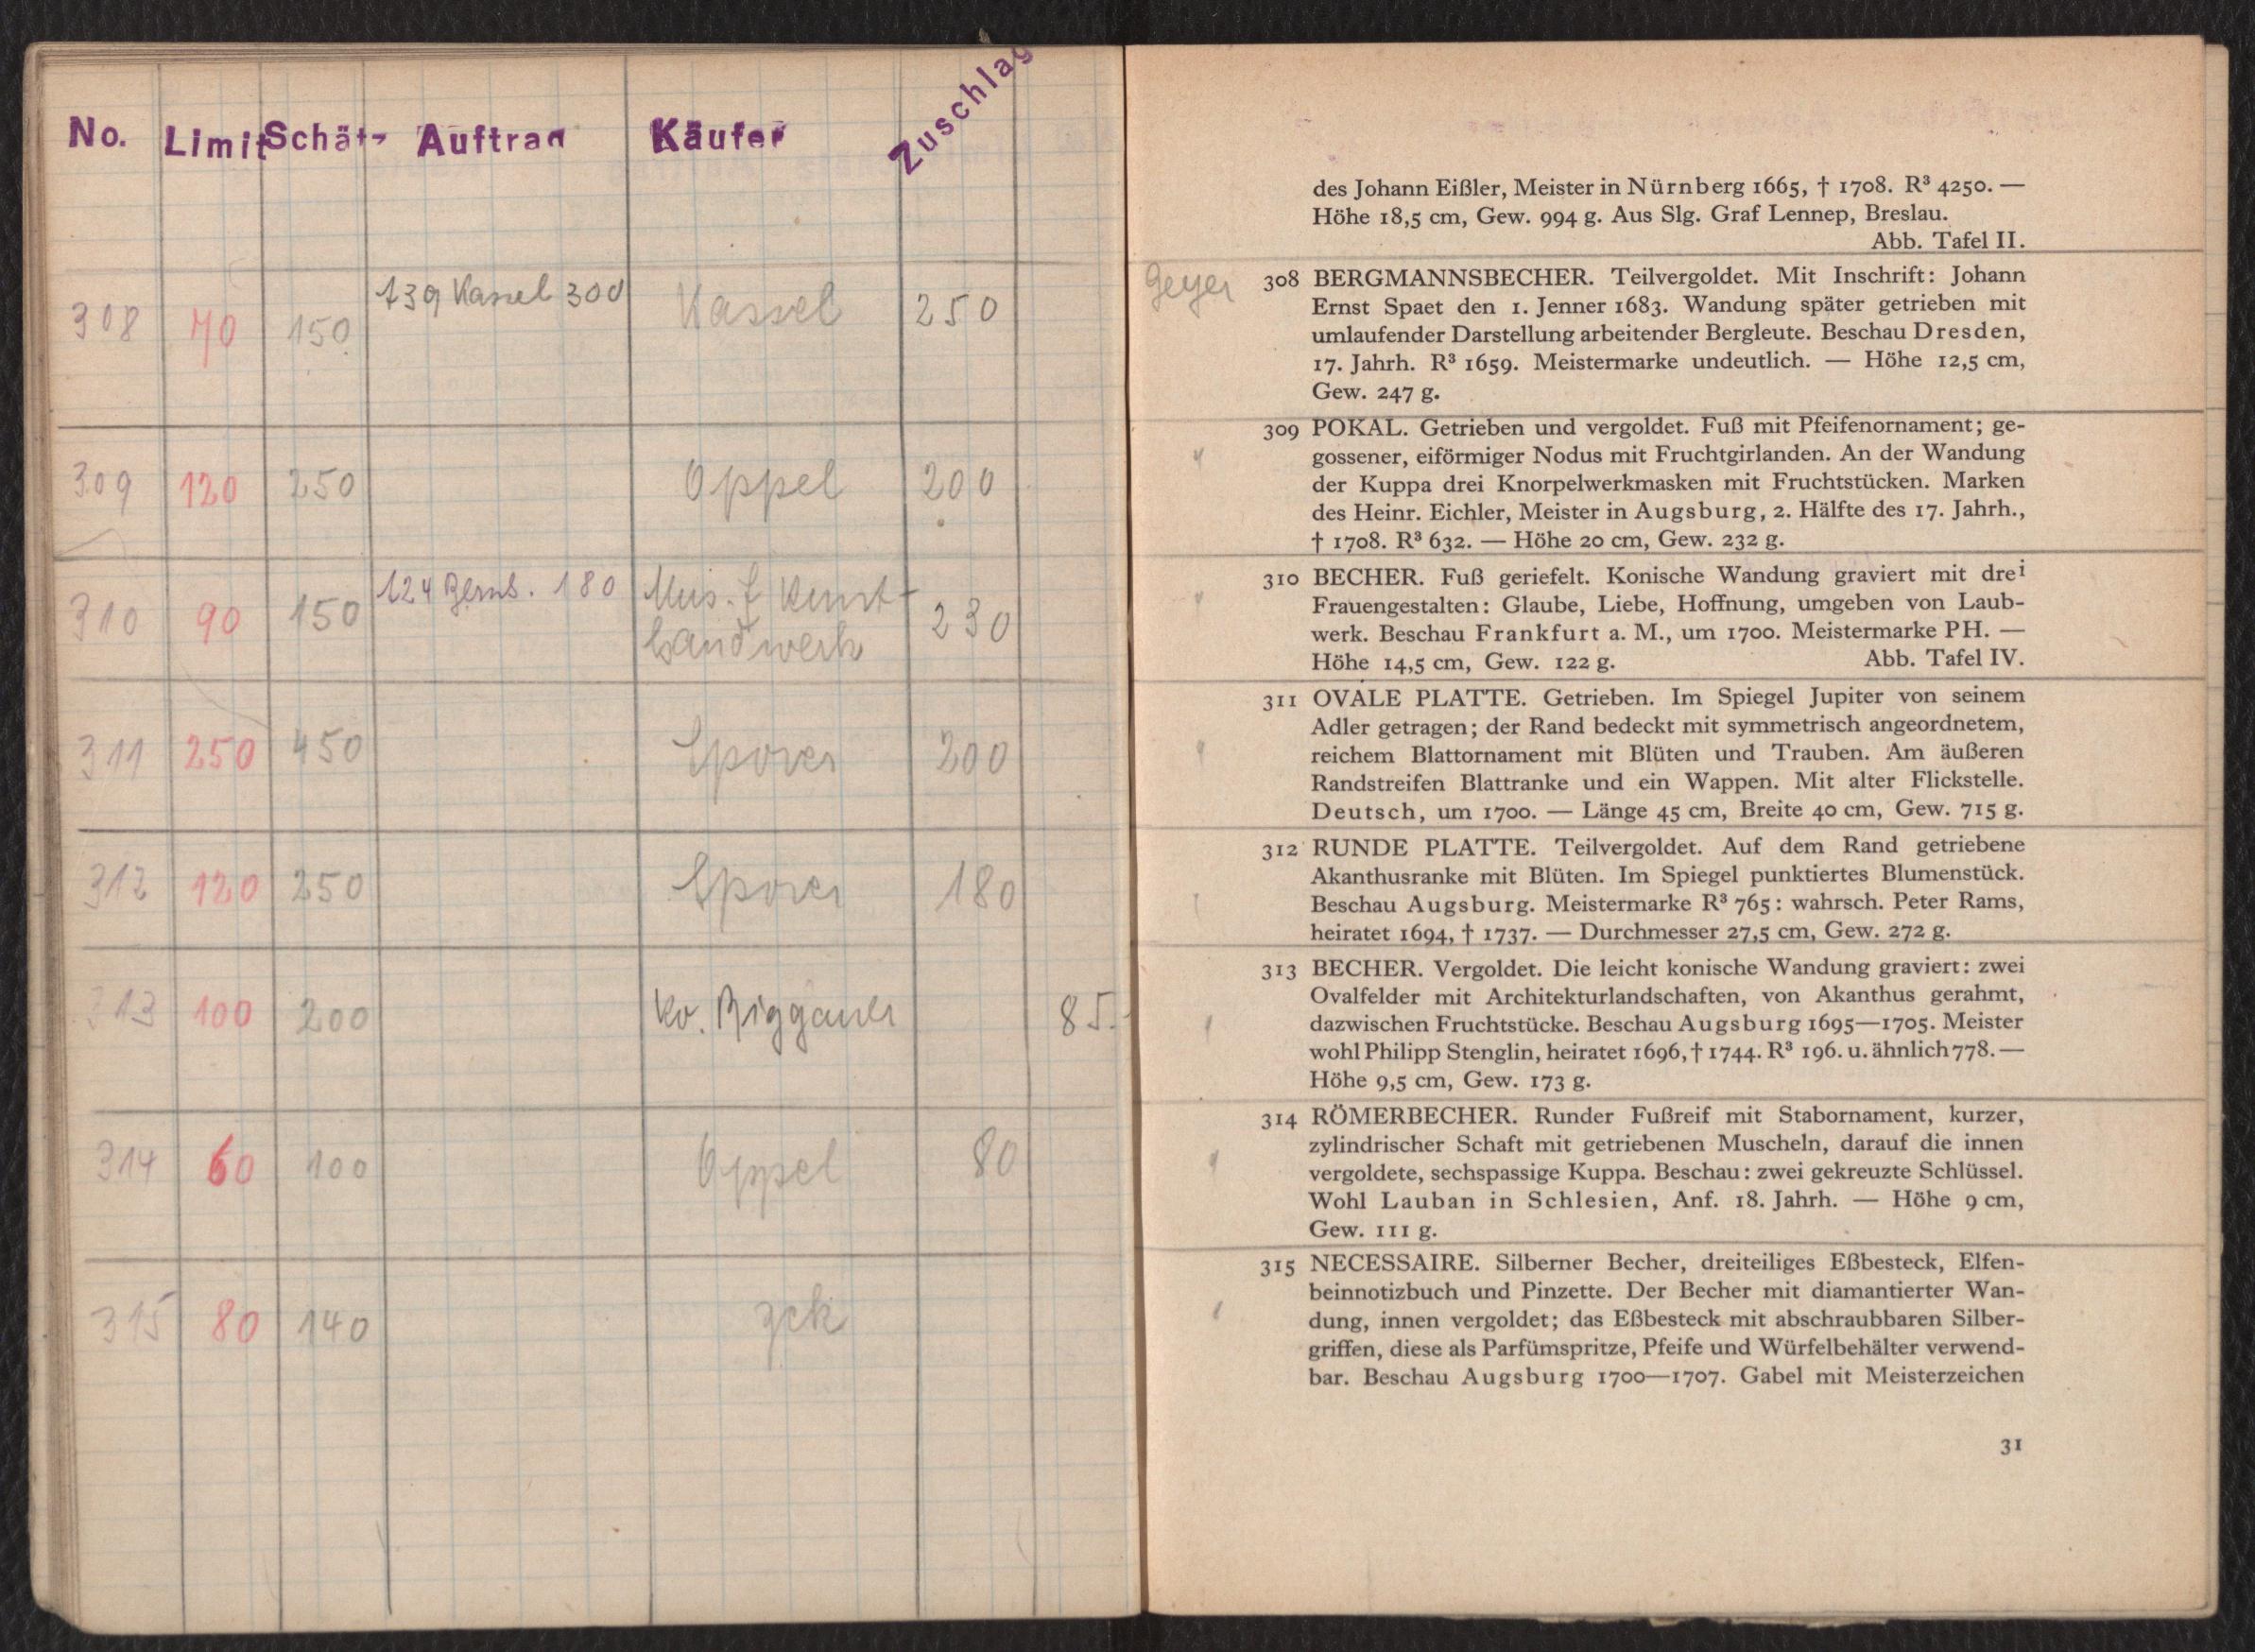 No. Limit Schätz Auftrag Käufer Zuschlag
308 70 150 139 Kassel 300 Kassel 250
309 120 250 Oppel 200
310 90 150 124 Bernh. 180 Mus. f Kunst-
handwerk 230
311 250 450 200
312 120 250 180
313 100 200 85.-
314 60 100 Oppel 80
315 80 140 zck
des Johann Eißler, Meister in Nürnberg 1665, † 1708. R³ 4250. —
Höhe 18,5 cm, Gew. 994 g. Aus Slg. Graf Lennep, Breslau.
Abb. Tafel II.
Geyer
308 BERGMANNSBECHER. Teilvergoldet. Mit Inschrift: Johann
Ernst Spaet den 1. Jenner 1683. Wandung später getrieben mit
umlaufender Darstellung arbeitender Bergleute. Beschau Dresden,
17. Jahrh. R³ 1659. Meistermarke undeutlich. — Höhe 12,5 cm,
Gew. 247 g.
309 POKAL. Getrieben und vergoldet. Fuß mit Pfeifenornament; ge-
gossener, eiförmiger Nodus mit Fruchtgirlanden. An der Wandung
der Kuppa drei Knorpelwerkmasken mit Fruchtstücken. Marken
des Heinr. Eichler, Meister in Augsburg, 2. Hälfte des 17. Jahrh.,
† 1708. R³ 632. — Höhe 20 cm, Gew. 232 g.
310 BECHER. Fuß geriefelt. Konische Wandung graviert mit drei
Frauengestalten: Glaube, Liebe, Hoffnung, umgeben von Laub-
werk. Beschau Frankfurt a. M., um 1700. Meistermarke PH. —
Höhe 14,5 cm, Gew. 122 g. Abb. Tafel IV.
311 OVALE PLATTE. Getrieben. Im Spiegel Jupiter von seinem
Adler getragen; der Rand bedeckt mit symmetrisch angeordnetem,
reichem Blattornament mit Blüten und Trauben. Am äußeren
Randstreifen Blattranke und ein Wappen. Mit alter Flickstelle.
Deutsch, um 1700. — Länge 45 cm, Breite 40 cm, Gew. 715 g.
312 RUNDE PLATTE. Teilvergoldet. Auf dem Rand getriebene
Akanthusranke mit Blüten. Im Spiegel punktiertes Blumenstück.
Beschau Augsburg. Meistermarke R³ 765: wahrsch. Peter Rams,
heiratet 1694, † 1737. — Durchmesser 27,5 cm, Gew. 272 g.
313 BECHER. Vergoldet. Die leicht konische Wandung graviert: zwei
Ovalfelder mit Architekturlandschaften, von Akanthus gerahmt,
dazwischen Fruchtstücke. Beschau Augsburg 1695—1705. Meister
wohl Philipp Stenglin, heiratet 1696, † 1744. R³ 196. u. ähnlich 778. —
Höhe 9,5 cm, Gew. 173 g.
314 RÖMERBECHER. Runder Fußreif mit Stabornament, kurzer,
zylindrischer Schaft mit getriebenen Muscheln, darauf die innen
vergoldete, sechspassige Kuppa. Beschau: zwei gekreuzte Schlüssel.
Wohl Lauban in Schlesien, Anf. 18. Jahrh. — Höhe 9 cm,
Gew. 111 g.
315 NECESSAIRE. Silberner Becher, dreiteiliges Eßbesteck, Elfen-
beinnotizbuch und Pinzette. Der Becher mit diamantierter Wan-
dung, innen vergoldet; das Eßbesteck mit abschraubbaren Silber-
griffen, diese als Parfümspritze, Pfeife und Würfelbehälter verwend-
bar. Beschau Augsburg 1700—1707. Gabel mit Meisterzeichen
31